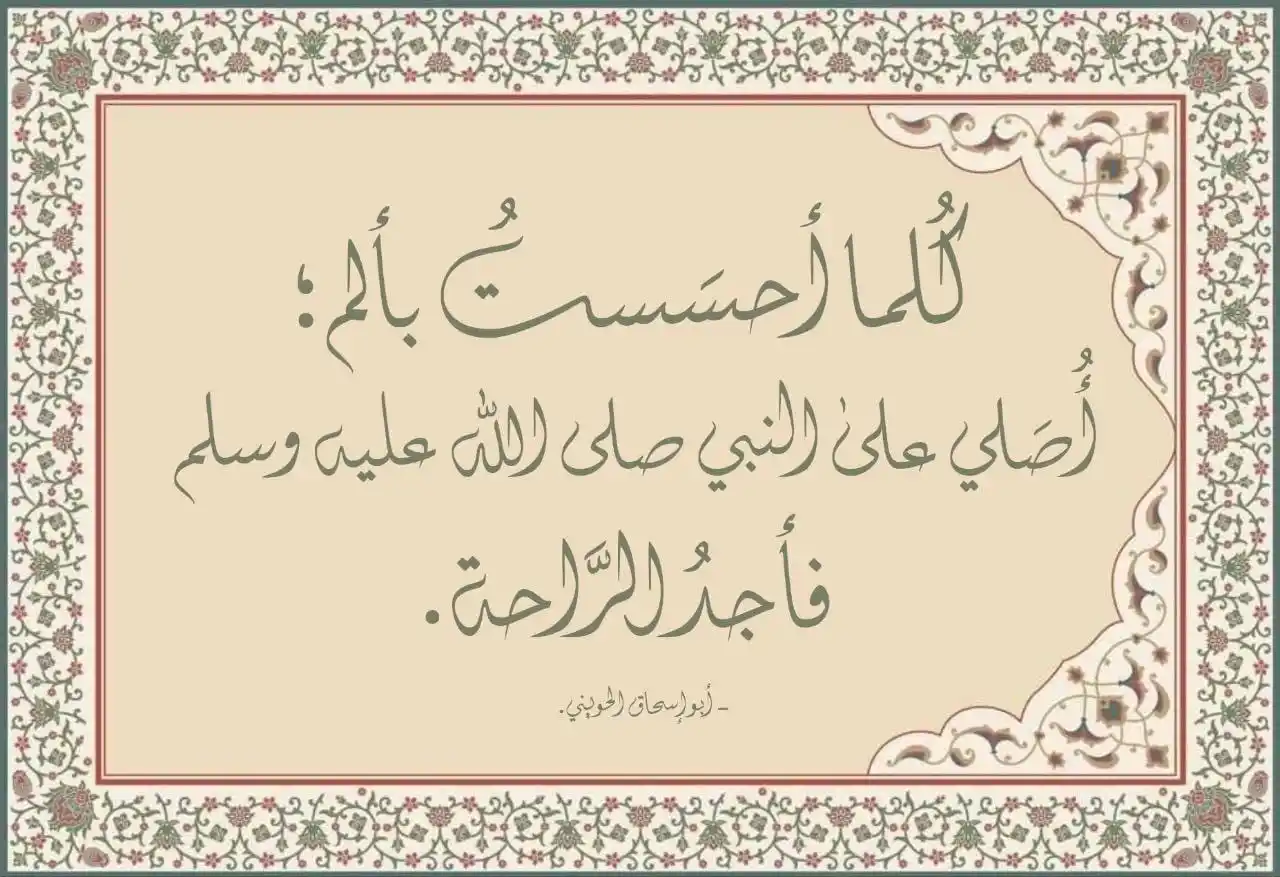 كُلما أحسَستُ بألم؛
أُصَلي على النبي صلى الله عليه وسلم
فأجدُ الرَّاحة.
- أبو إسحاق الحويني.